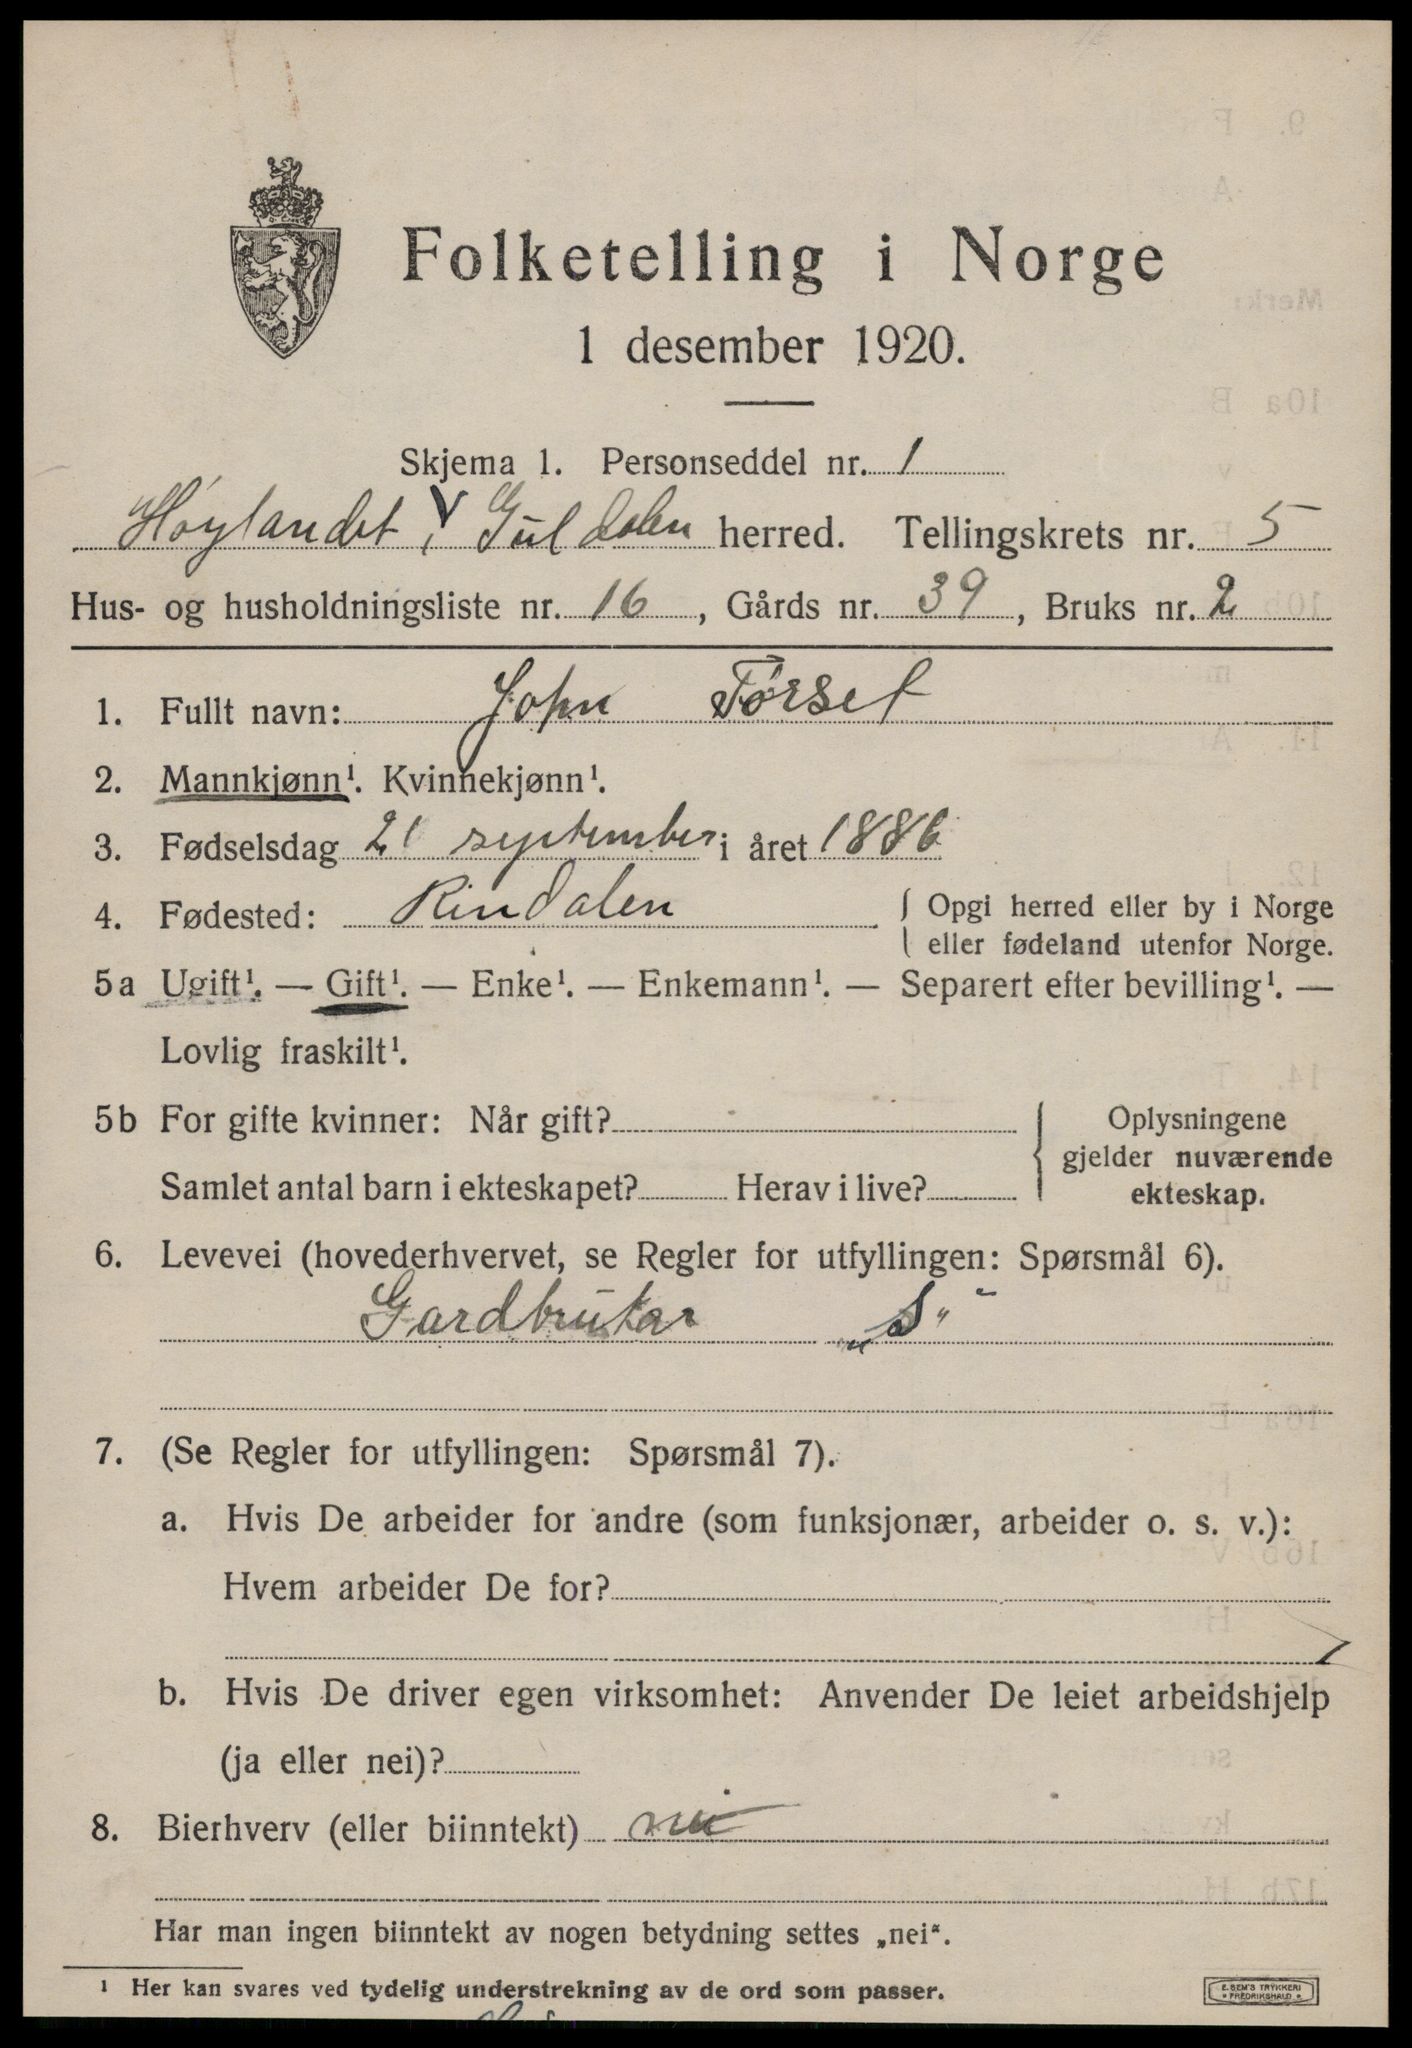 Folketelling i Norge
1 desember 1920.
Skjema 1. Personseddel nr. 1
Høylandet, V Guldalen herred. Tellingskrets nr. 5
Hus- og husholdningsliste nr. 16, Gårds nr. 39, Bruks nr. 2
1. Fullt navn: John Tørset
2. Mannkjønn¹. Kvinnekjønn¹.
3. Fødselsdag 21 september i året 1886
4. Fødested: Rindalen { Opgi herred eller by i Norge
eller fødeland utenfor Norge.
5a Ugift¹. — Gift¹. — Enke¹. — Enkemann¹. — Separert efter bevilling¹. —
Lovlig fraskilt¹.
5b For gifte kvinner: Når gift? { Oplysningene
gjelder nuværende
Samlet antal barn i ekteskapet? Herav i live? ekteskap.
6. Levevei (hovederhvervet, se Regler for utfyllingen: Spørsmål 6).
Gardbrukar „S"
7. (Se Regler for utfyllingen: Spørsmål 7).
a. Hvis De arbeider for andre (som funksjonær, arbeider o. s. v.):
Hvem arbeider De for?
b. Hvis De driver egen virksomhet: Anvender De leiet arbeidshjelp
(ja eller nei)?
8. Bierhverv (eller biinntekt) nei
Har man ingen biinntekt av nogen betydning settes „nei".
¹ Her kan svares ved tydelig understrekning av de ord som passer.
E. SEM'S TRYKKERI
FREDRIKSHALD